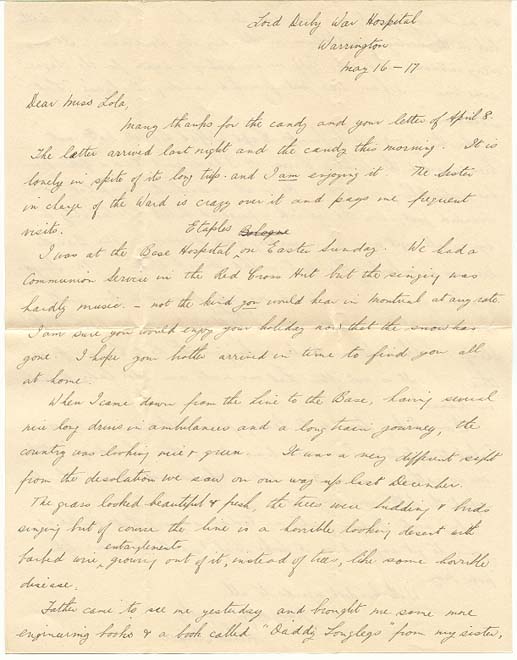 Lord Derby War Hospital
Warrington
May 16 – 17
Dear Miss Lola,
Many thanks for the candy and your letter of April 8.
The latter arrived last night and the candy this morning. It is
lovely in spite of its long trip. and I am enjoying it. The Sister
in charge of the Ward is crazy over it and pays me frequent
visits.
I was at the Base Hospital, Etaples Bologne on Easter Sunday. We had a
Communion Service in the Red Cross Hut but the singing was
hardly music. – not the kind you would hear in Montreal at any rate.
I am sure you would enjoy your holiday now that the snow has
gone. I hope your brother arrived in time to find you all
at home.
When I came down from the line to the Base, having several
nice long drives in ambulances and a long train journey, the
country was looking nice & green. It was a very different sight
from the desolation we saw on our way up last December.
The grass looked beautiful & fresh, the trees were budding & birds
singing but of course the line is a horrible looking desert with
barbed wire entanglements growing out of it, instead of trees, like some horrible
disease.
Father came to see me yesterday and brought me some more
engineering books & a book called "Daddy Longlegs" from my sister,